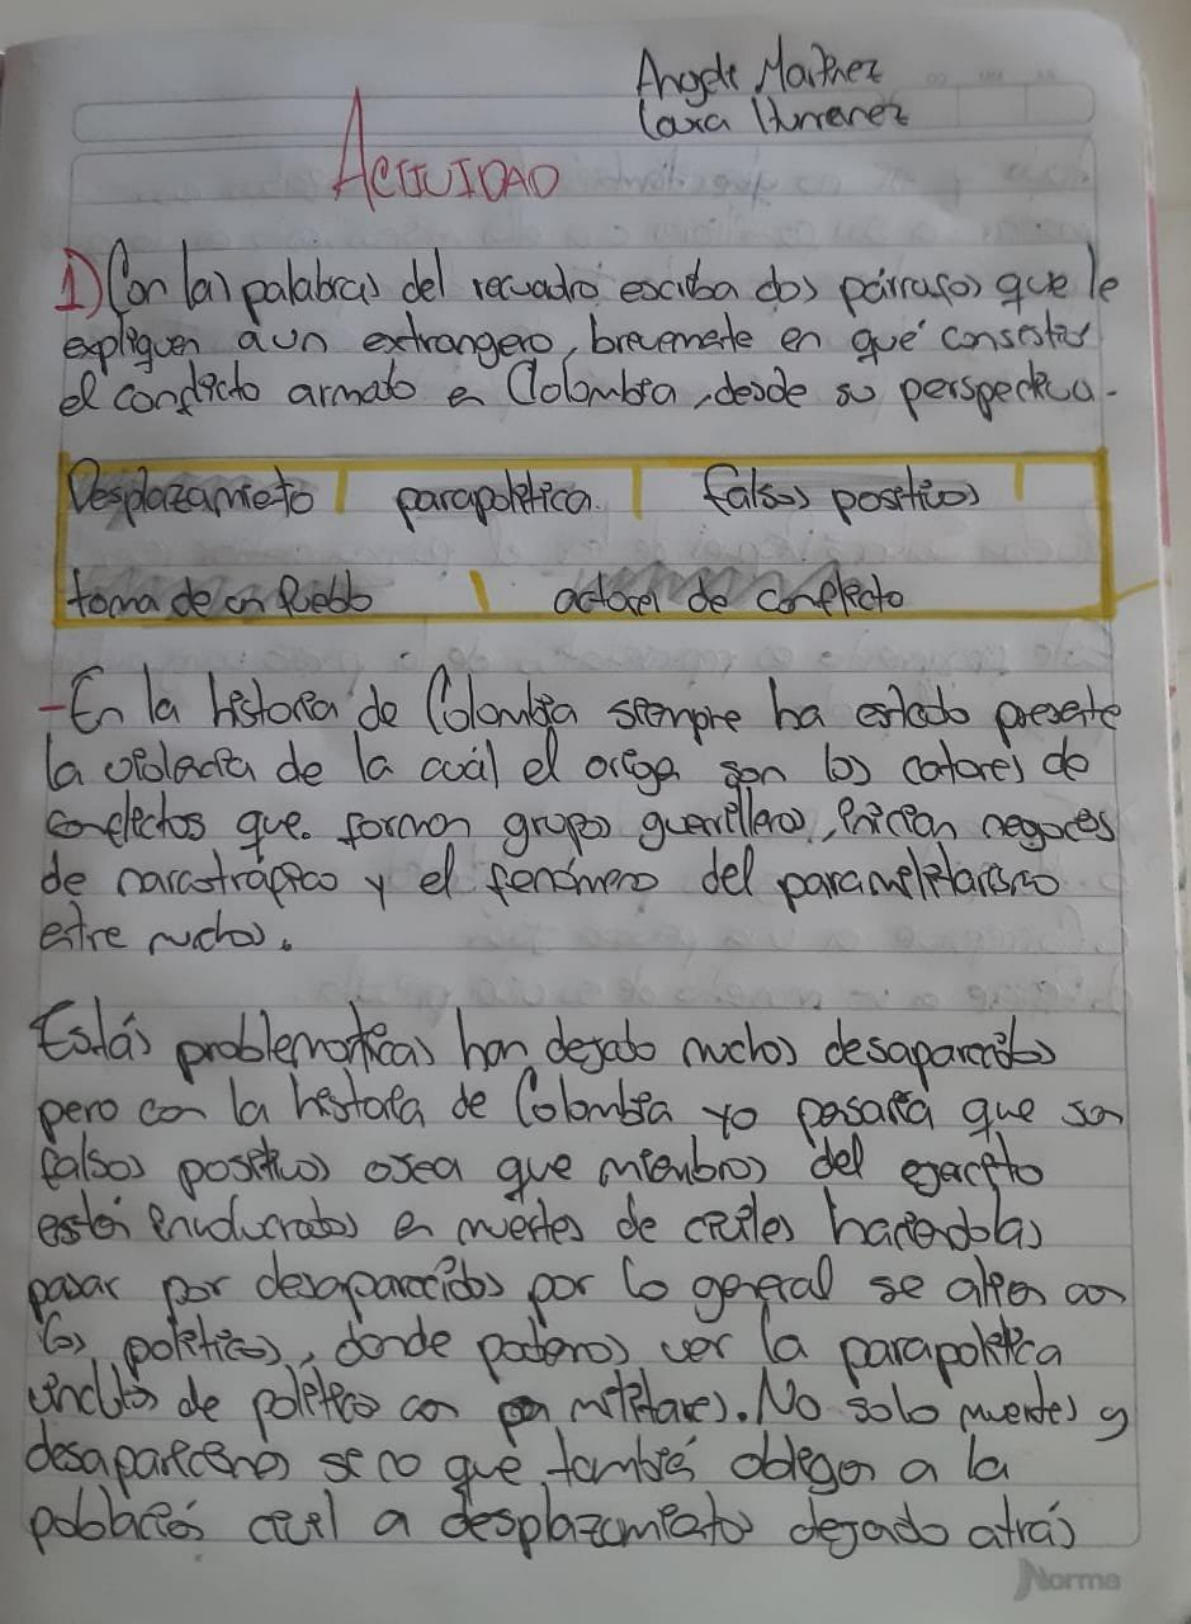 Angele Martinez
Lara Humanez
ACTIVIDAD
1) Con las palabras del recuadro escriba dos párrafos que le
expliquen a un extrangero, brevemente en qué consistio
el conflicto armado en Colombia, desde su perspectiva.
Desplazamiento | parapolitica | falsos positivos |
toma de un Pueblo | actores de conflicto
- En la historia de Colombia siempre ha estado presente
la violencia de la cuál el origen son los catores de
conflictos que forman grupos guerrilleros, inician negocios
de narcotráfico y el fenómeno del paramilitarismo
entre muchos.
Estás problematicas han dejado muchos desaparecidos
pero con la historia de Colombia yo pensaria que son
falsos positivos osea que miembros del ejercito
están involucrados en muertes de civiles haciendolas
pasar por desaparecidos por lo general se alian con
los politicos, donde podemos ver la parapolitica
vinculos de politico con militares. No solo muertes y
desapareciones si no que también obligan a la
población civil a desplazamientos dejando atrás
Norma